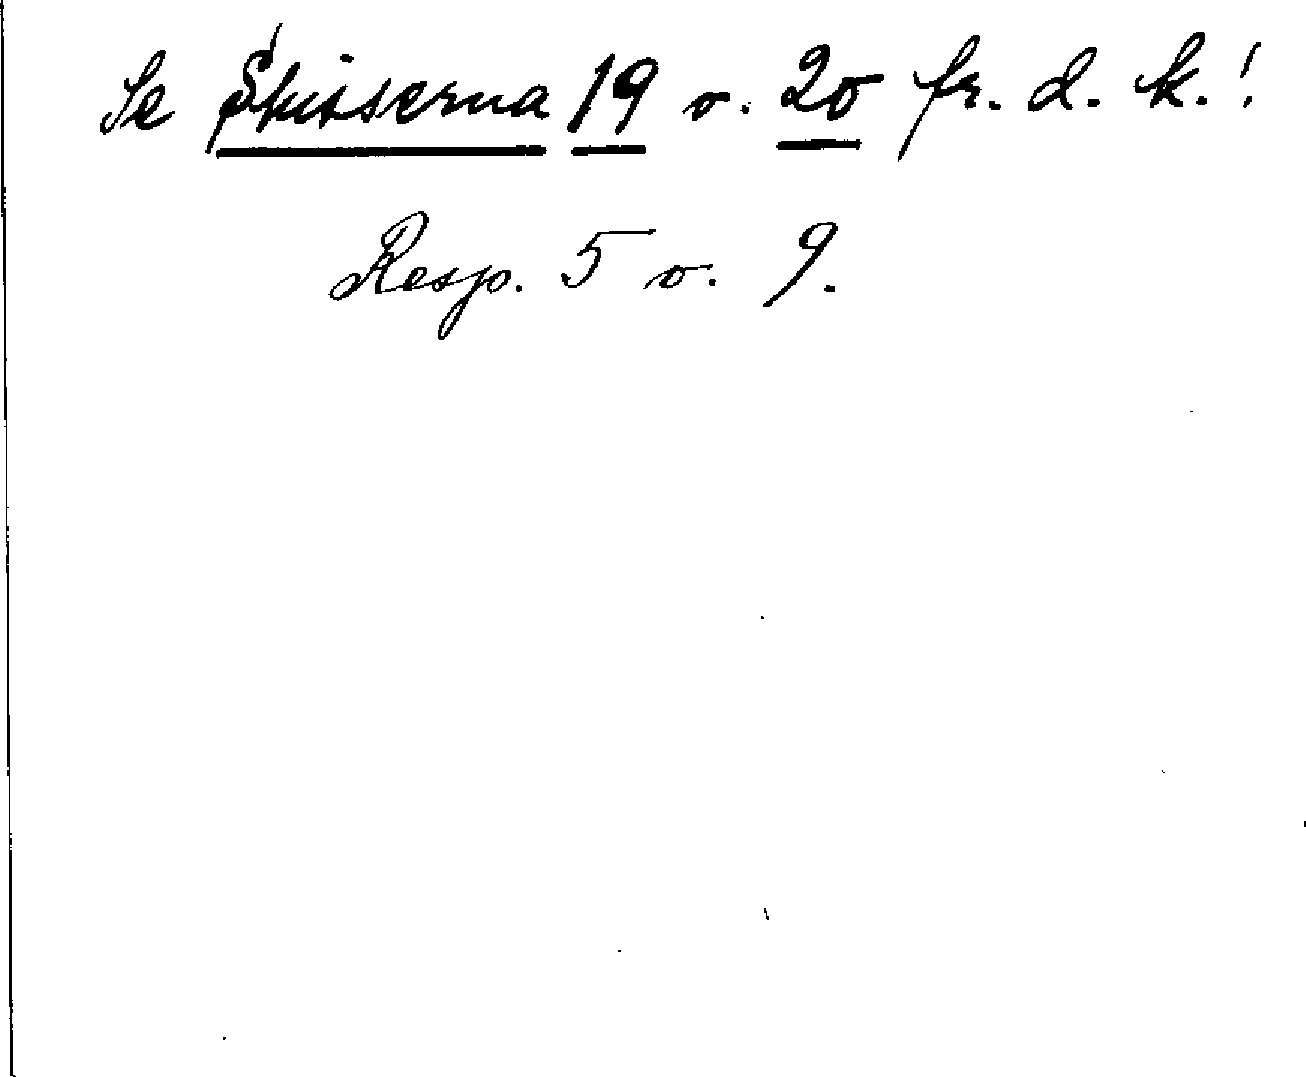 Se Skisserna 19 o. 20 fr. d. k.!
Resp. 5 o. 9.